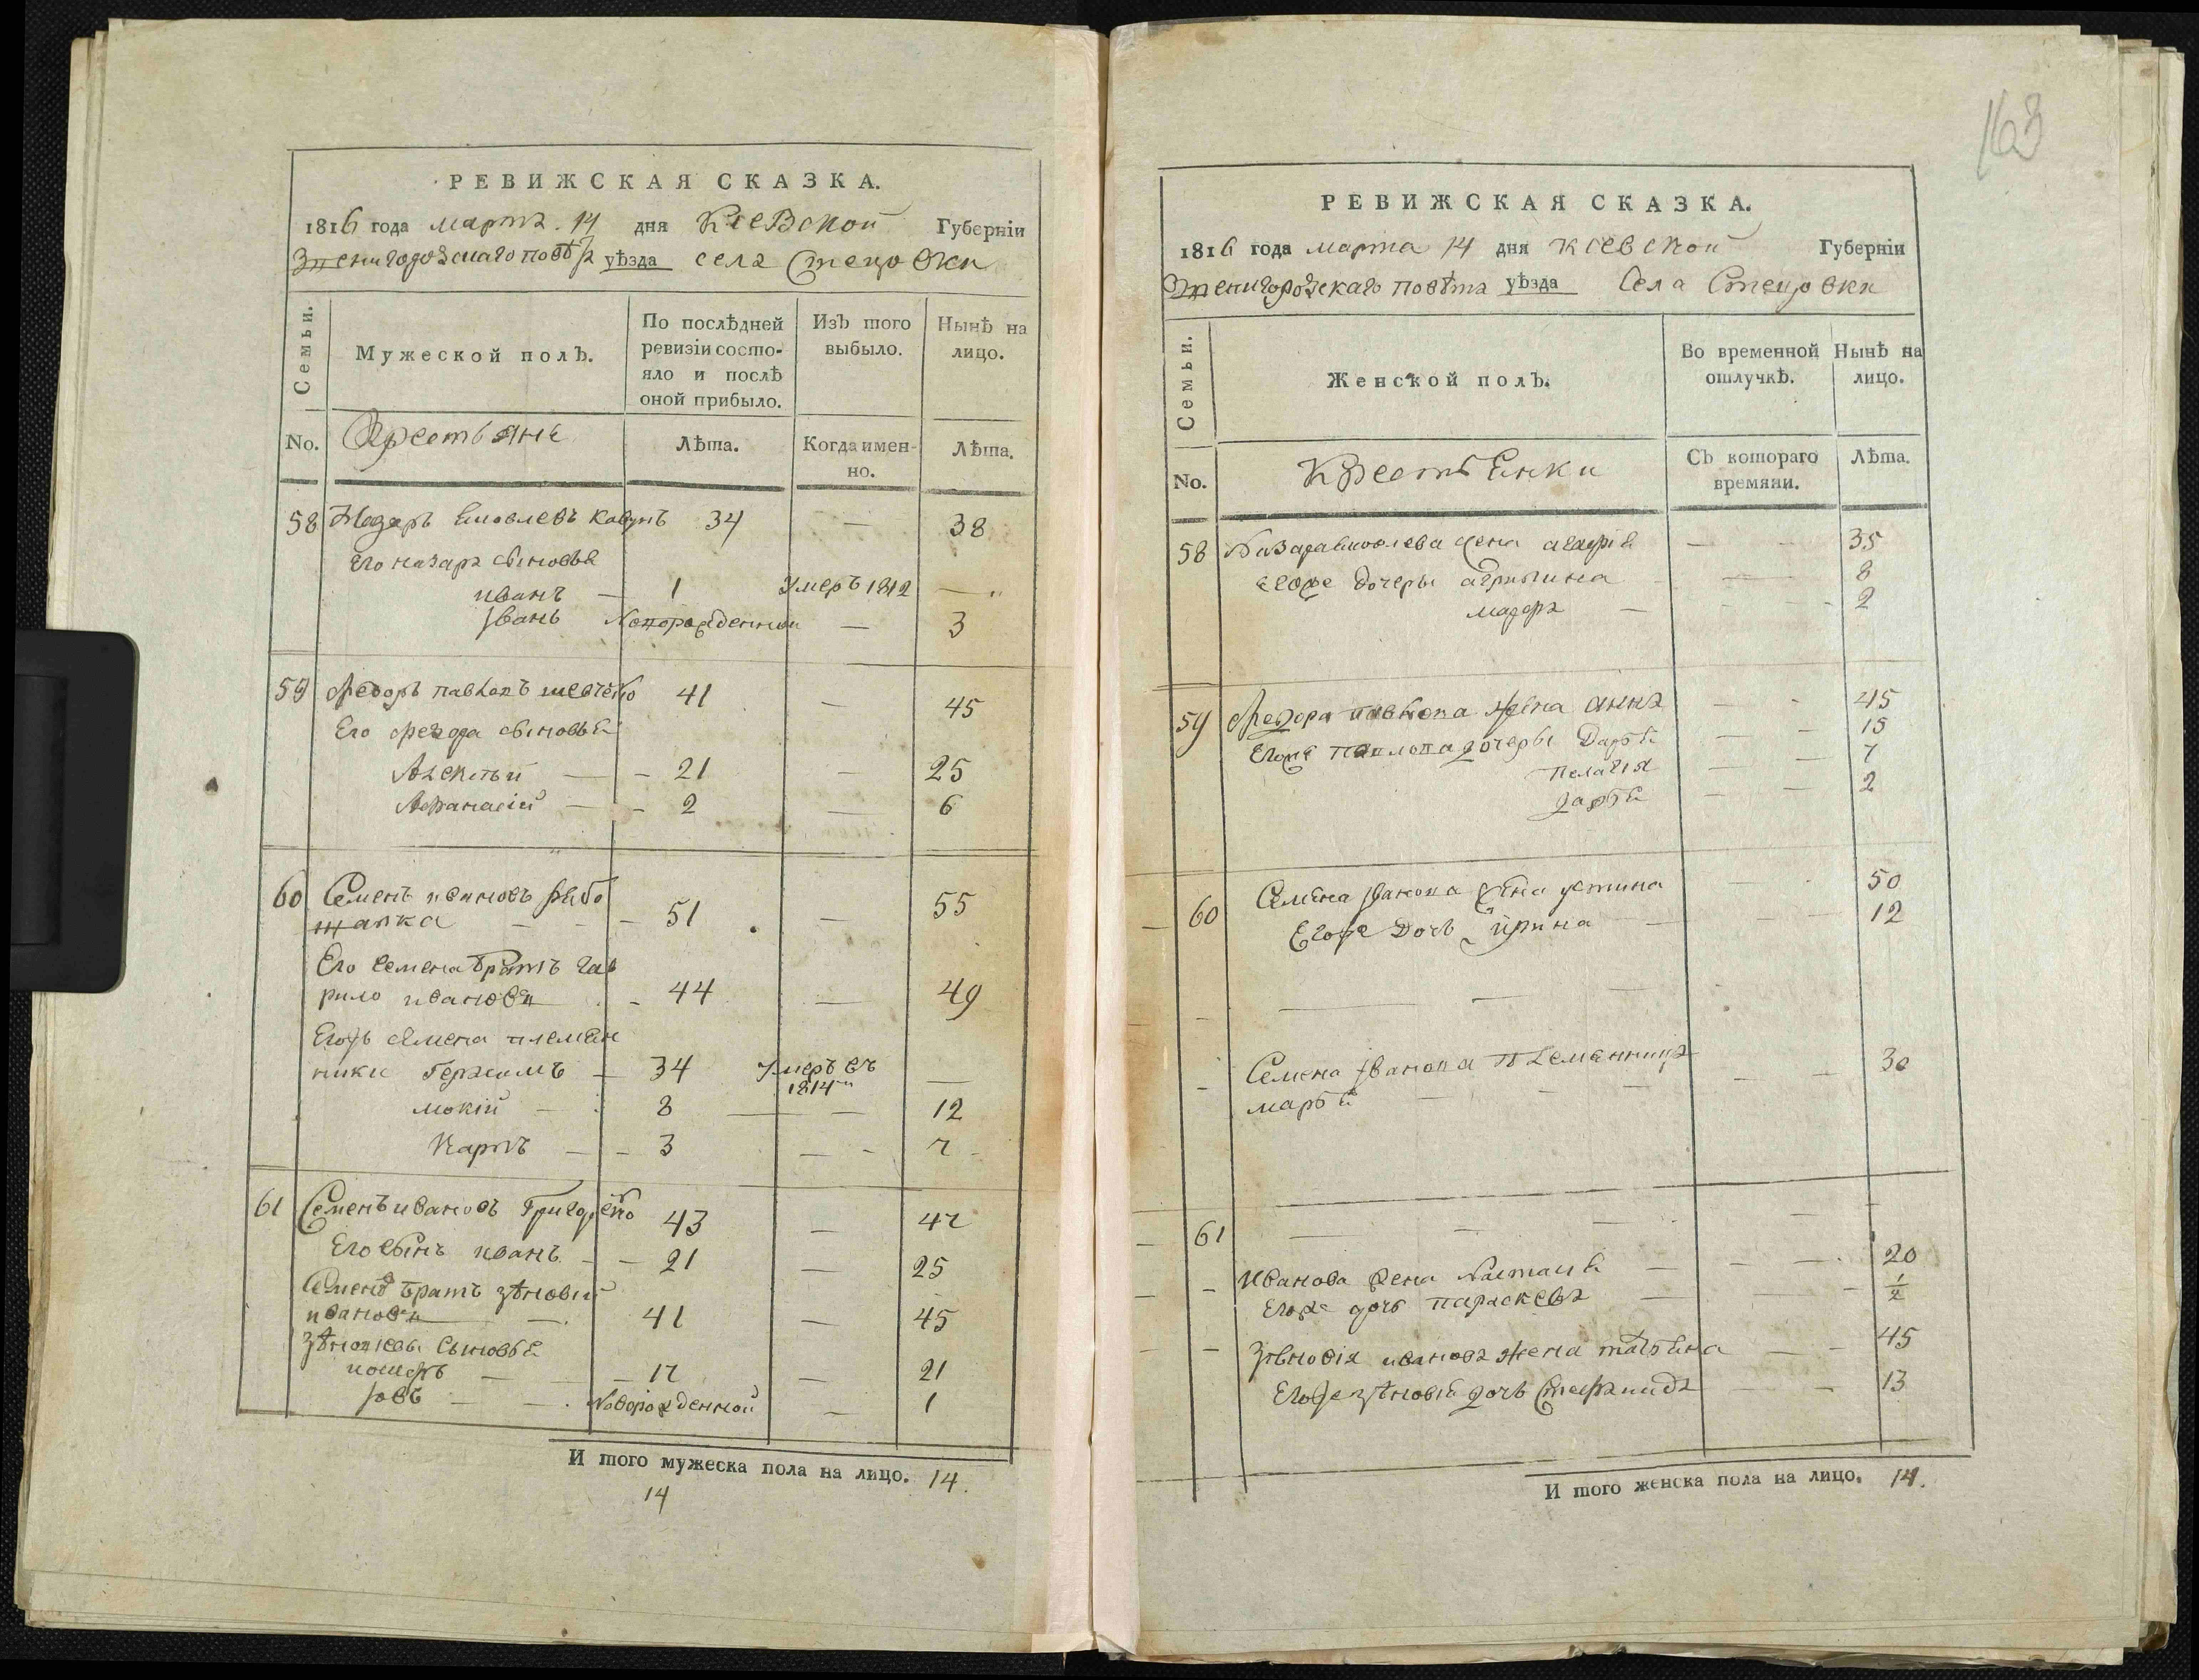 РЕВИЖСКАЯ СКАЗКА.
1816 года марта 14 дня Киевской Губерніи
Звенигородскаго повѣта уѣзда села Стецовки
Семьи.
Мужеской полъ.
По послѣдней ревизіи состо-
яло и послѣ
оной прибыло.
Изъ того
выбыло.
Нынѣ на
лицо.
No.
Крестьяне
Лѣта.
Когда имен-
но.
Лѣта.
58 Назаръ Яковлевъ Кавунъ 34 — 38
Его назара сыновья
иванъ — 1 Умеръ 1812 —
Iванъ Новорожденный — 3
59 Федоръ павловъ шевченко 41 — 45
Его федора сыновья
Алексѣй — 21 — 25
Афанасій — 2 — 6
60 Семенъ ивановъ рябо
шапка — 51 — 55
Его Семена братъ гав
рило ивановъ — 44 — 49
Егожъ семена племян
ники Герасимъ — 34 Умеръ въ 1814 —
мокій — 8 — 12
Карпъ — 3 — 7
61 Семенъ ивановъ Григоренко 43 — 47
Его сынъ иванъ — 21 — 25
Семена братъ зѣновій
ивановъ — 41 — 45
Зѣновіевы Сыновья
— 17 — 21
Iовъ — Новорожденной — 1
И того мужеска пола на лицо. 14.
14
163
РЕВИЖСКАЯ СКАЗКА.
1816 года марта 14 дня Киевской Губерніи
Звенигородскаго повѣта уѣзда Села Стецовки
Семьи.
Женской полъ.
Во временной
отлучкѣ.
Нынѣ на
лицо.
No.
Крестьянки
Съ котораго
времяни.
Лѣта.
58 Назара яковлева жена — 35
егоже дочеры агрипина — 8
— 2
59 Федора павлова жена анна — 45
Егоже павлова дочеры Дарья — 15
пелагія — 7
дарья — 2
60 Семена Iванова жена устина — 50
Егоже Дочь ирина — 12
Семена Iванова племянница
марья — 30
61
Иванова жена Настася — 20
Егоже дочь параскева — 1/2
Зѣновія иванова жена татьяна — 45
Егоже зѣновія дочь Стефанида — 13
И того женска пола на лицо. 14.